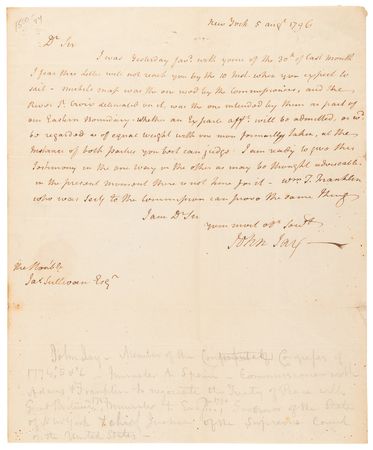 New York 5 augt. 1796
Dr Sir
I was Yesterday favd. with yours of the 30th of last month
I fear this Letter will not reach you by the 10 Inst. when you expect to
sail - Mitchels map was the one used by the Commissioners, and the
River St. Croix delineated on it, was the one intended by them as part of
our Eastern Boundary - whether an Exparte afft. will be admitted, or wd.
be regarded as of equal weight with one more formally taken, at the
instance of both Parties you best can judge. I am ready to give this
Testimony in the one way or the other as may be thought adviseable.
in the present moment there is not time for it - Wm. T. Franklin
who was Secy. to the Commission can prove the same Thing
I am Dr Sir
your most obt. Servt.
John Jay
The Honble
Jas. Sullivan Esqr.
John Jay - Member of the Continental Congress of
1774, 5 & 6 Minister to Spain - Commissioner with
Adams & Franklin to negotiate the Treaty of Peace with
Great Britain, Minister to Governor of the State
of New York & Chief Justice of the Supreme Court
of the United States -